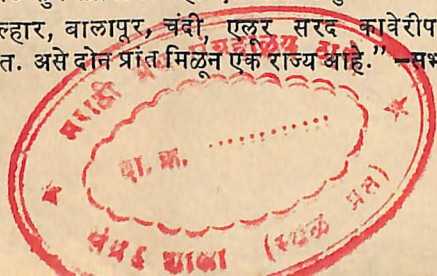 ल्हार, बालापूर, चंदी, एलूर सरद कावेरीप
त. असे दोन प्रांत मिळून एक राज्य आहे." —सभ
मराठी ग्रंथ संग्रहालय
दा. क्र. ............
शाखा (स्थळ प्रत)